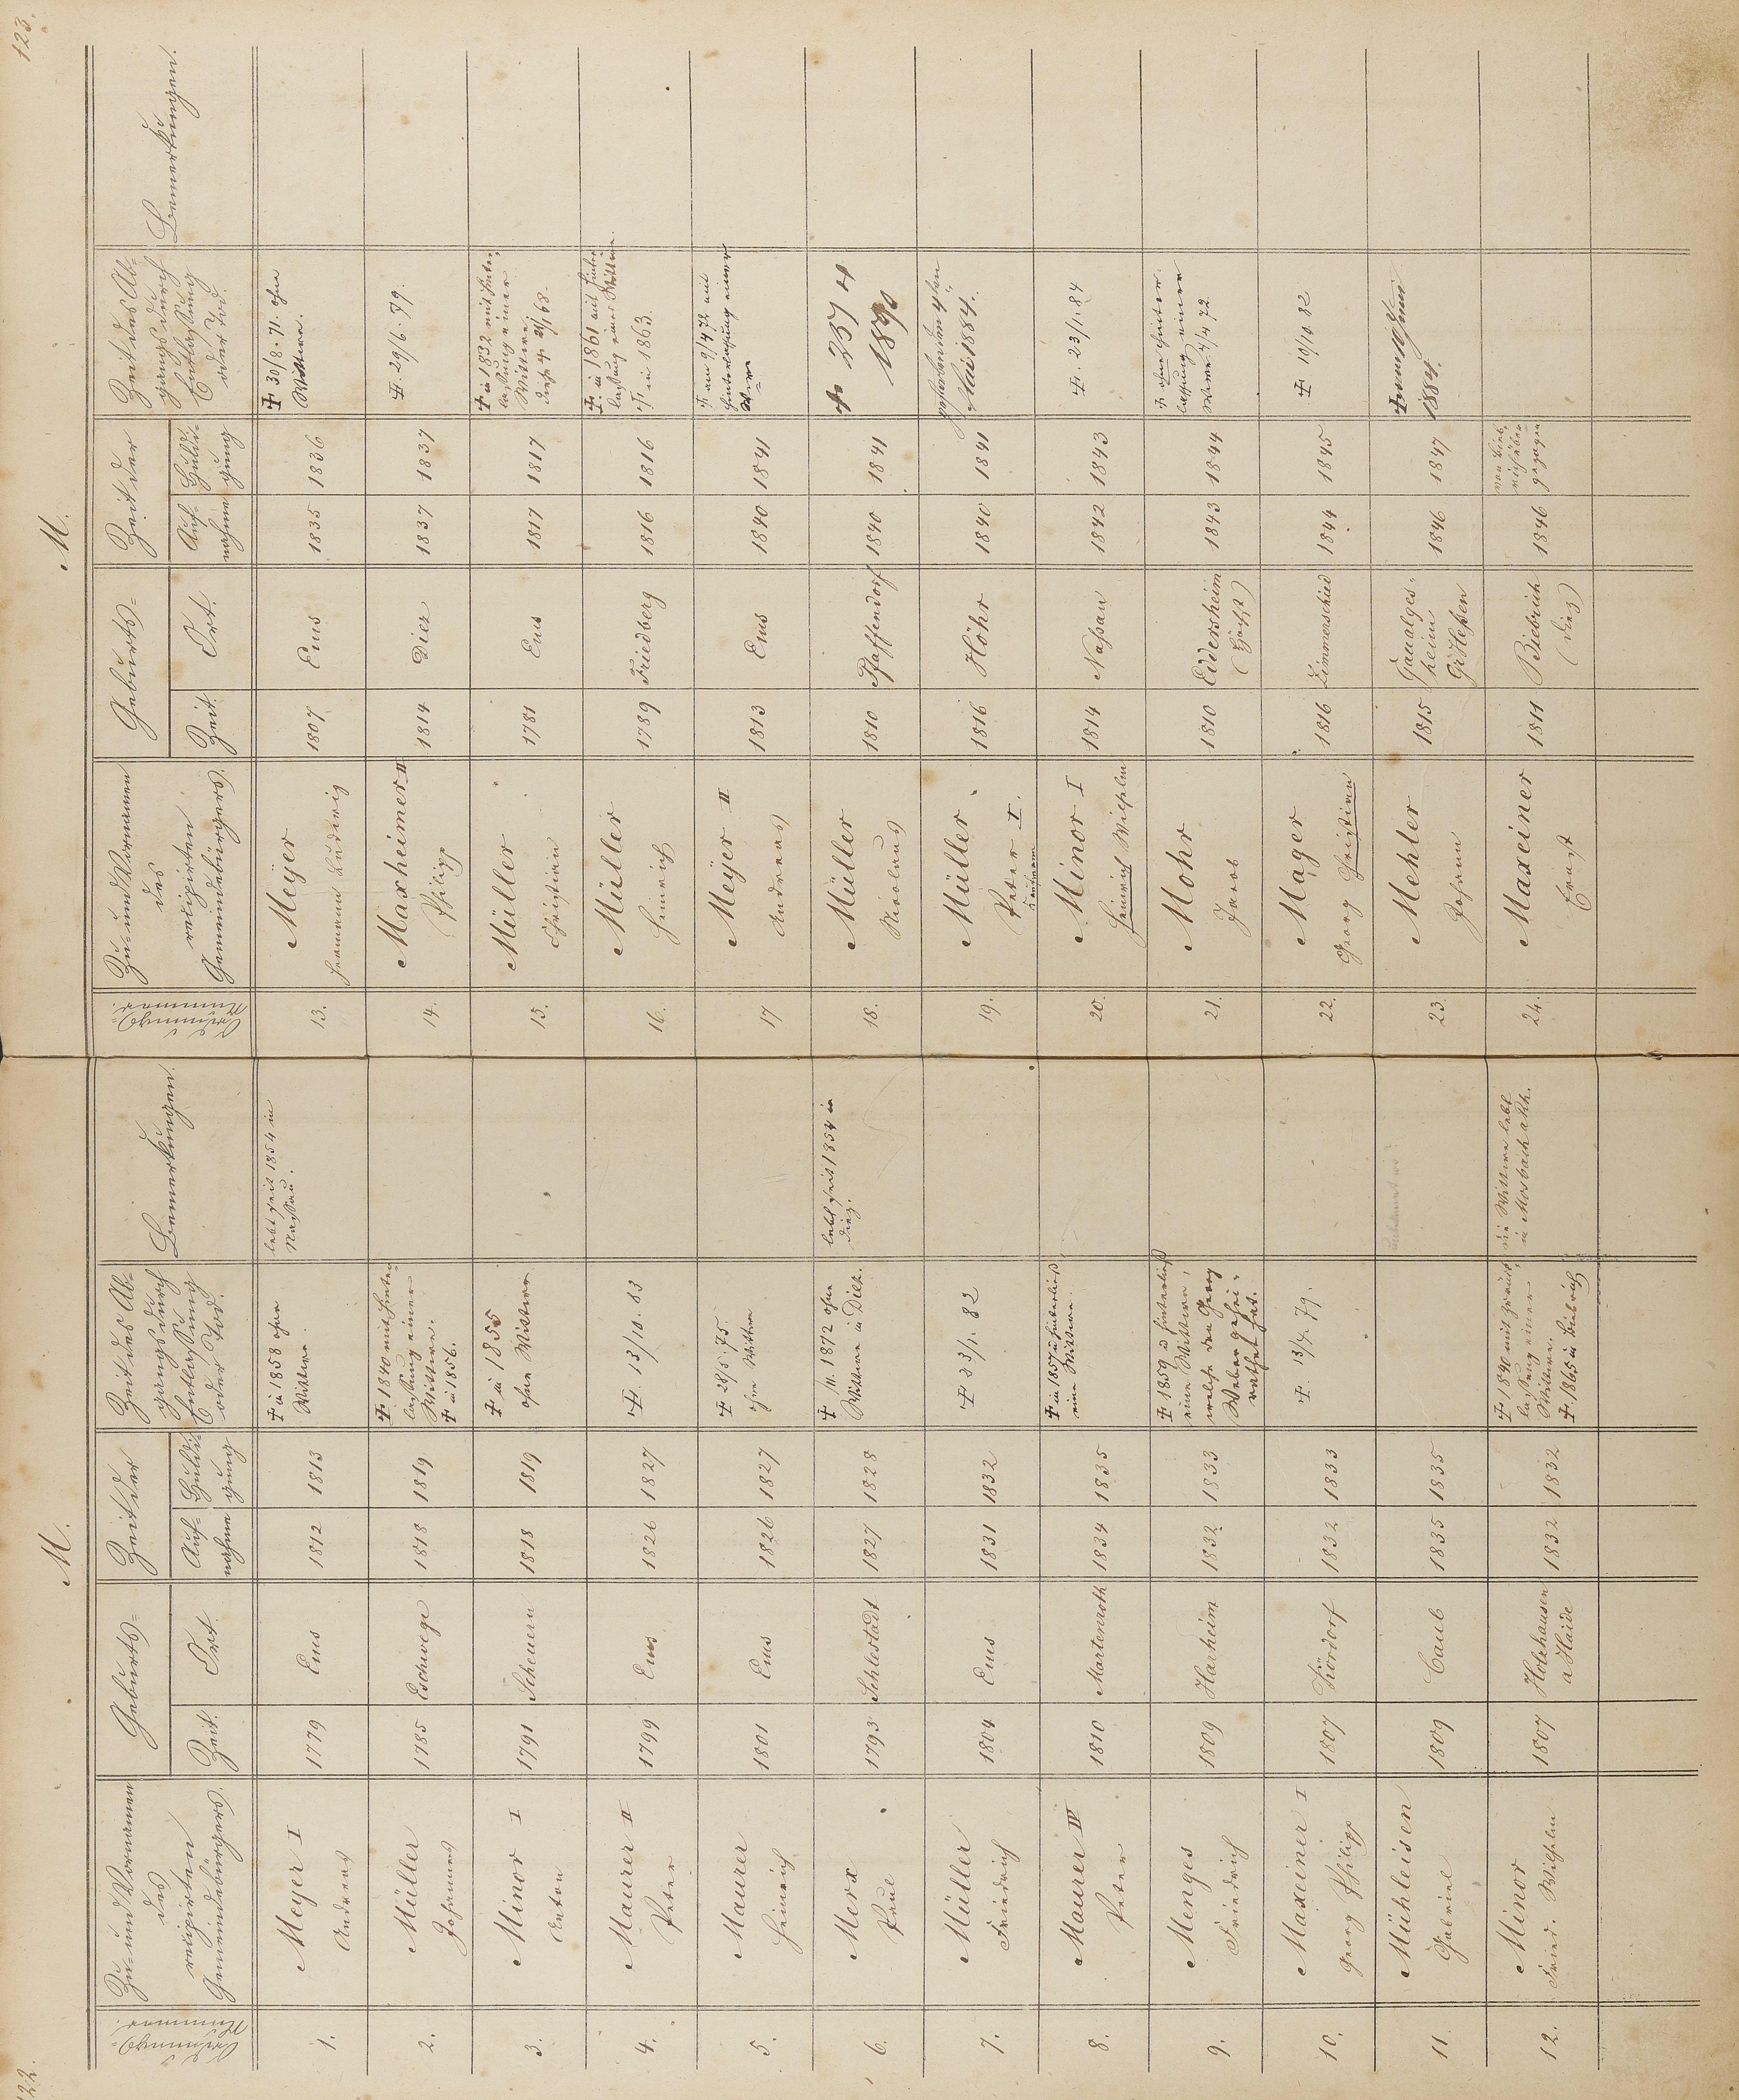 122.
M.
Ordnungs=
Nummer.
Zu- und Vornamen
des
recipirten
Gemeindebürgers.
Geburts=
Zeit.
Ort.
Zeit der
Auf-
nahme
Huldi-
gung
Zeit des Ab-
gangs durch
Entlassung
oder Tod.
Bemerkungen.
1.
Meyer I
Andreas
1779
Ems
1812
1813
✝ in 1858 ohne
Wittwe.
lebt seit 1854 in
Nassau.
2.
Müller
Johannes
1785
Eschwege
1818
1819
✝ 1840 mit Hinter-
lassung einer
Wittwe.
✝ in 1856.
3.
Minor I
Anton
1791
Scheuern
1818
1819
✝ in 1855
ohne Wittwe
4.
Maurer II
Peter
1799
Ems
1826
1827
✝. 13/10. 83
5.
Maurer
Heinrich
1801
Ems
1826
1827
✝ 28/5. 75.
ohne Wittwe
6.
Merx
Paul
1793
Schlestadt
1827
1828
✝ /11. 1872 ohne
Wittwe in Diez.
lebt seit 1854 in
Diez.
7.
Müller
Friedrich
1804
Ems
1831
1832
✝ 23/1. 82
8.
Maurer IV
Peter
1810
Martenroth
1834
1835
✝ in 1857 u hinterließ
eine Wittwe.
9.
Menges
Friedrich
1809
Harheim
1832
1833
✝ 1859 u hinterließ
eine Wittwe,
welche den Georg
Weber gehei-
rathet hat.
10.
Maxeiner I
Georg Philipp
1807
Dördorf
1832
1833
✝. 13/4. 79.
11.
Mühleisen
Gabriel
1809
Caub
1835
1835
12.
Minor
Fried. Wilhelm
1807
Holzhausen
a Haide
1832
1832
✝ 1840 mit Hinter-
lassung einer
Wittwe.
✝ 1865 in Biebrich
die Wittwe lebt
in Mosbach a Rh.
123.
M.
Ordnungs=
Nummer.
Zu- und Vornamen
des
recipirten
Gemeindebürgers.
Geburts=
Zeit.
Ort.
Zeit der
Auf-
nahme
Huldi-
gung
Zeit des Ab-
gangs durch
Entlassung
oder Tod.
Bemerkungen.
13.
Meÿer
Hermann Ludwig
1807
Ems
1835
1836
✝ 30/8. 71. ohne
Wittwe.
14.
Maxheimer II
Philipp
1814
Diez
1837
1837
✝. 29/6. 79.
15.
Müller
Christian
1781
Ems
1817
1817
✝ in 1832 mit Hinter-
lassung einer
Wittwe
diese ✝ 21/1 68.
16.
Müller
Heinrich
1789
Friedberg
1816
1816
✝. in 1861 mit Hinter-
lassung einer Wittwe.
✝ in 1863.
17
Meÿer II
Andreas
1813
Ems
1840
1841
✝ am 9/4 72 mit
Hinterlassung einer
Wwe
18.
Müller
Nicolaus
1810
Pfaffendorf
1840
1841
✝ 23/7
1890
19.
Müller
Peter I.
Kaufmann
1816
Höhr
1840
1841
gestorben am 4ten
Mai 1884.
20.
Minor I
Heinrich Wilhelm
1814
Naßau
1842
1843
✝. 23/1. 84
21.
Mohr
Jacob
1810
Eddersheim
(Höchst)
1843
1844
✝ ohne Hinter-
lassung einer
Wwe. 4/4 72.
22.
Mager
Georg Christian
1816
Zimmerschied
1844
1845
✝ 10/10 82
23.
Mehler
Johann
1815
Gaualges-
heim
Gr Heßen
1846
1847
1884.
24.
Maxeiner
Ernst
1811
Biebrich
(Diez)
1846